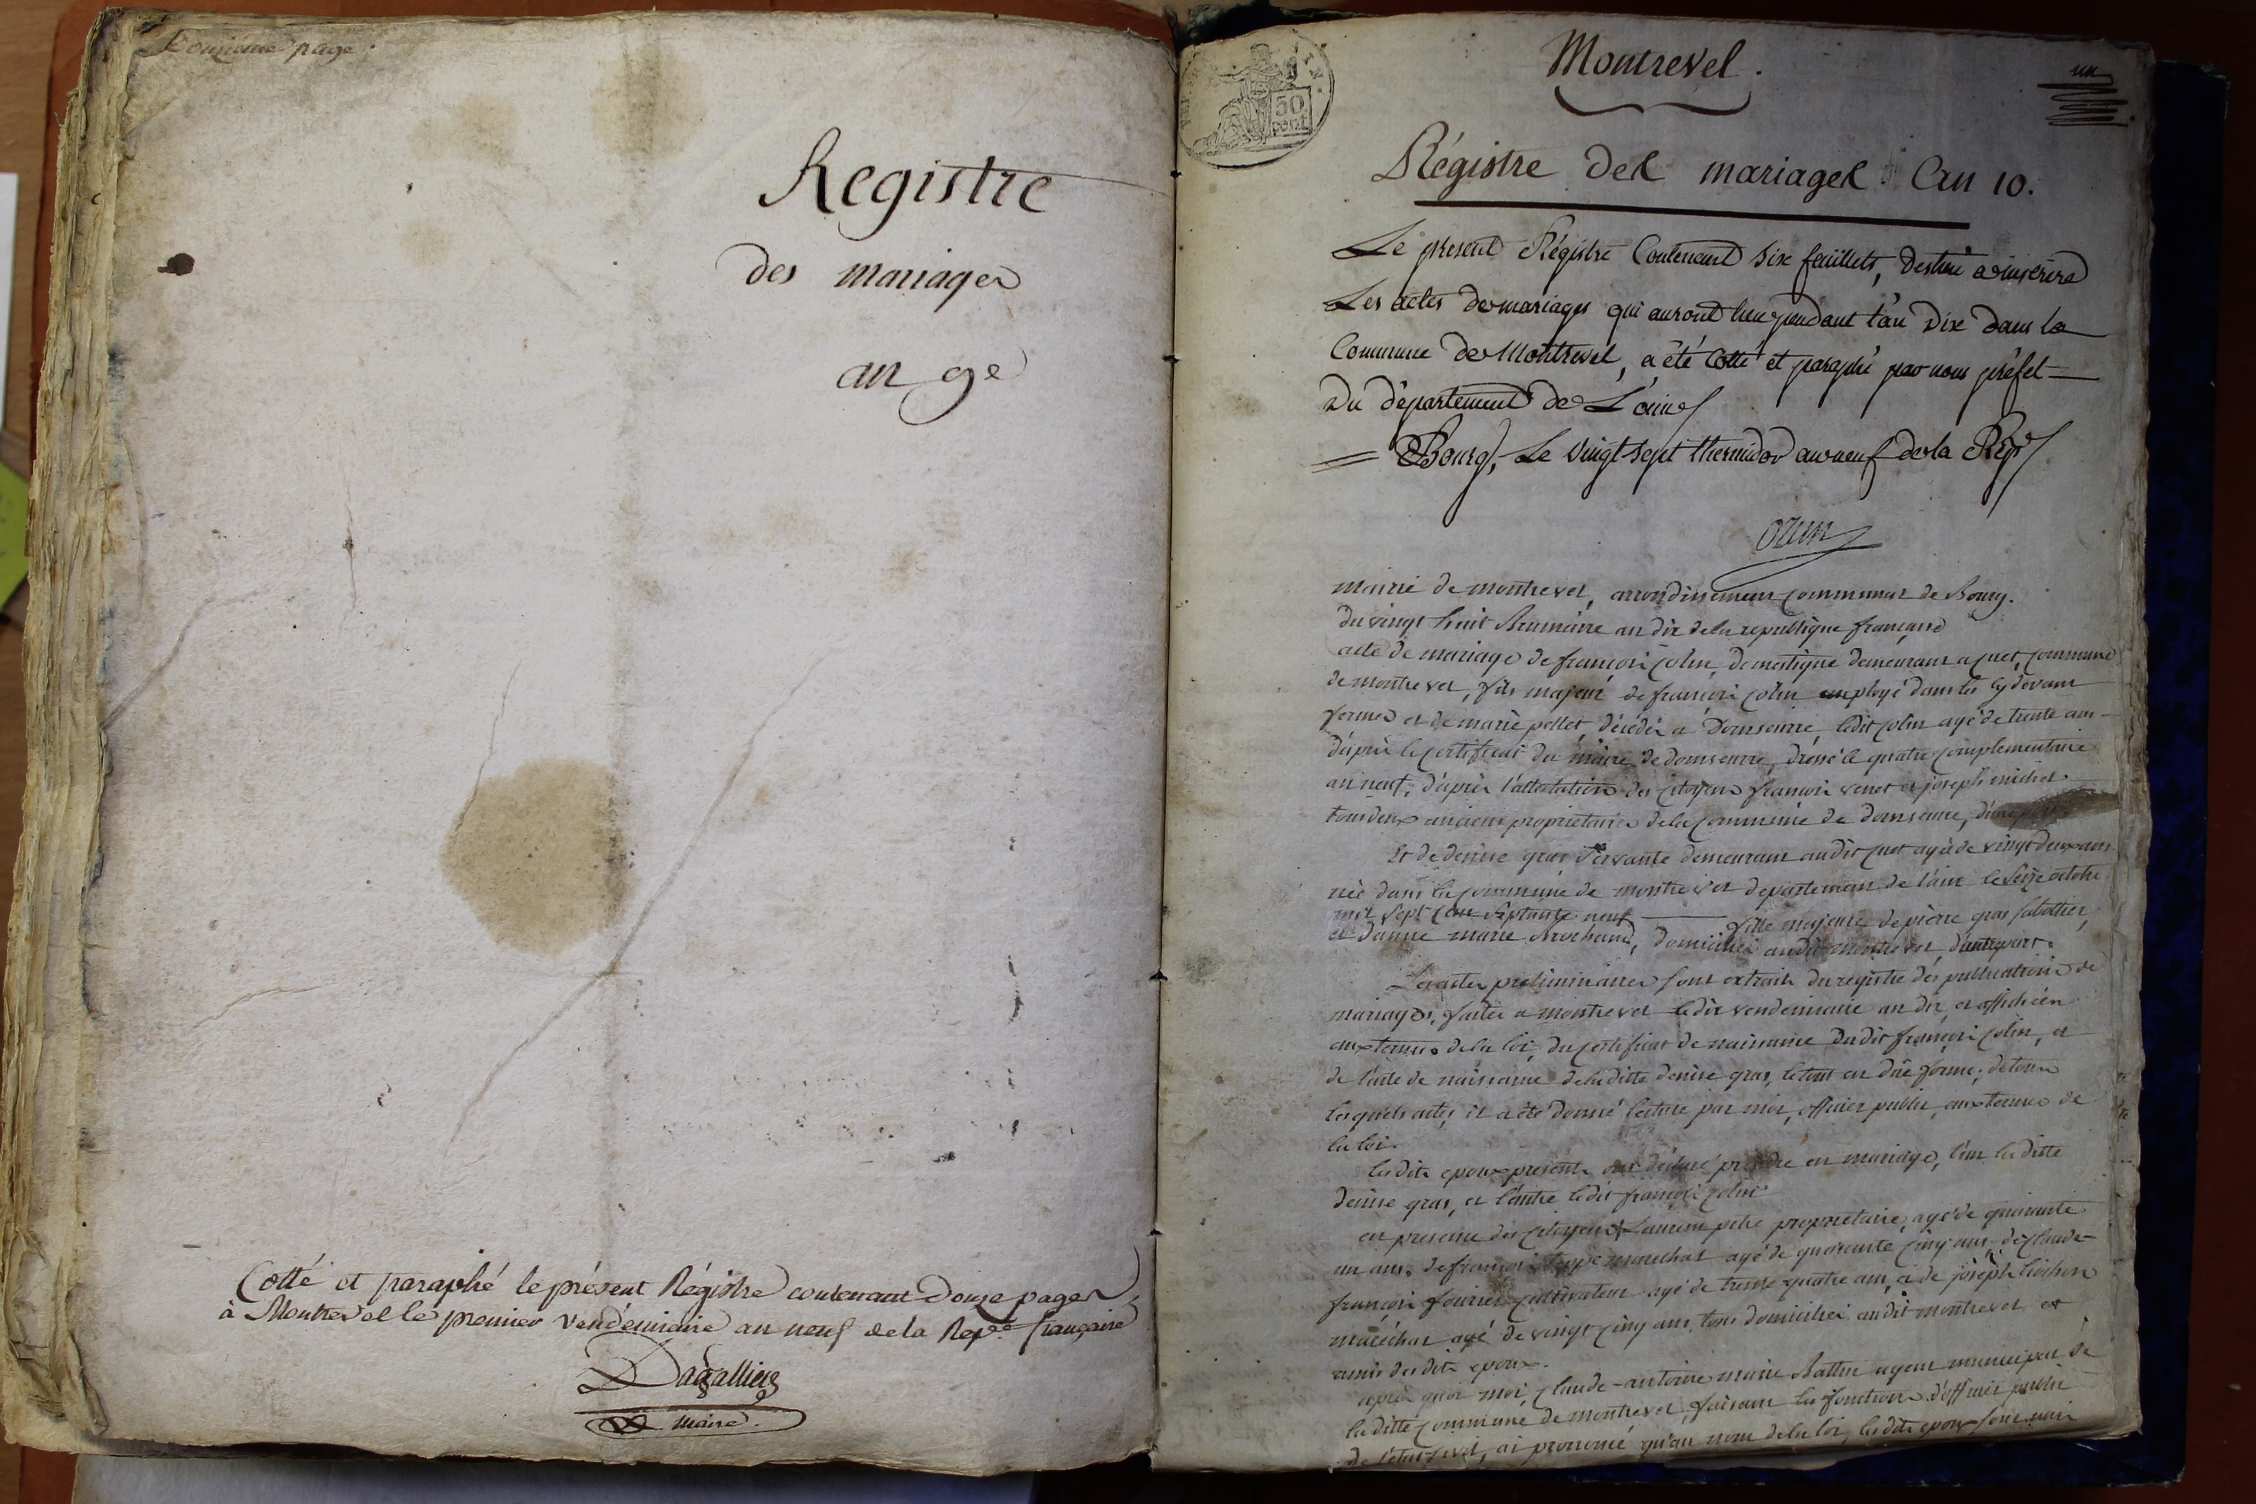 Douzieme page.
Registre
des mariages
an 9e
Cotté et paraphé le présent Régistre contenant douze pages
à Montrevel le premier vendémiaire an neuf de la Repe. française
Dagallier
maire.
50
cent
Montrevel.
un
Régistre des mariages An 10.
Le present Régistre Contenant six feuillets, destiné a inscrire
Les actes de mariages qui auront lieu pendant l'an dix dans la
Commune de Montrevel, a été Cotté et paraphé par nous préfet
Du département de L'ain
Bourg, Le vingt sept thermidor an neuf de la Rép
ozun
mairie de montrevel, arrondissement communal de Bourg.
du vingt huit Brumaire an dix de la republique française
acte de mariage de françois colin, domestique demeurant a cuet, commune
de montrevel, fils majeur de françois colin employé dans les cy devant
fermes et de marie pellet, décédés a Domseurre, ledit colin agé de trente ans
d'après le certificat du maire de domseurre, dressé le quatre complementaire
an neuf, d'après l'attestation des citoyens françois venet et joseph michel
tous deux anciens proprietaires de la commune de domseurre, d'une part
Et de denise gras servante demeurant audit cuet agée de vingt deux ans
née dans la commune de montrevel departement de l'ain le seize octobre
mil sept cent septante neuf fille majeure de pierre gras sabottier,
et d'anne marie Brochand, domiciliés audit montrevel, d'autre part.
Les actes preliminaires sont extraits du registre des publications de
mariages, faites a montrevel le dix vendemiaire an dix, et affichées
aux termes de la loi, du certificat de naissance dudit françois colin, et
de l'acte de naissance de laditte denise gras, le tout en düe forme; de tous
lesquels actes, il a été donné lecture par moi, officier public, aux termes de
la loi.
lesdits epoux presents ont déclaré prendre en mariage, l'un laditte
denise gras, et l'autre ledit françois colin
en presence des citoyens Laurent petre proprietaire, agé de quarante
un ans, de françois marechal agé de quarante cinq ans, de claude-
françois fournier cultivateur agé de trente quatre ans, et de joseph
maréchal agé de vingt cinq ans, tous domiciliés audit montrevel et
amis desdits epoux.
après quoi moi, claude-antoine marie agent municipal de
laditte commune de montrevel, faisant les fonctions d'officier public
de l'état civil, ai prononcé qu'au nom de la loi, lesdits epoux sont unis